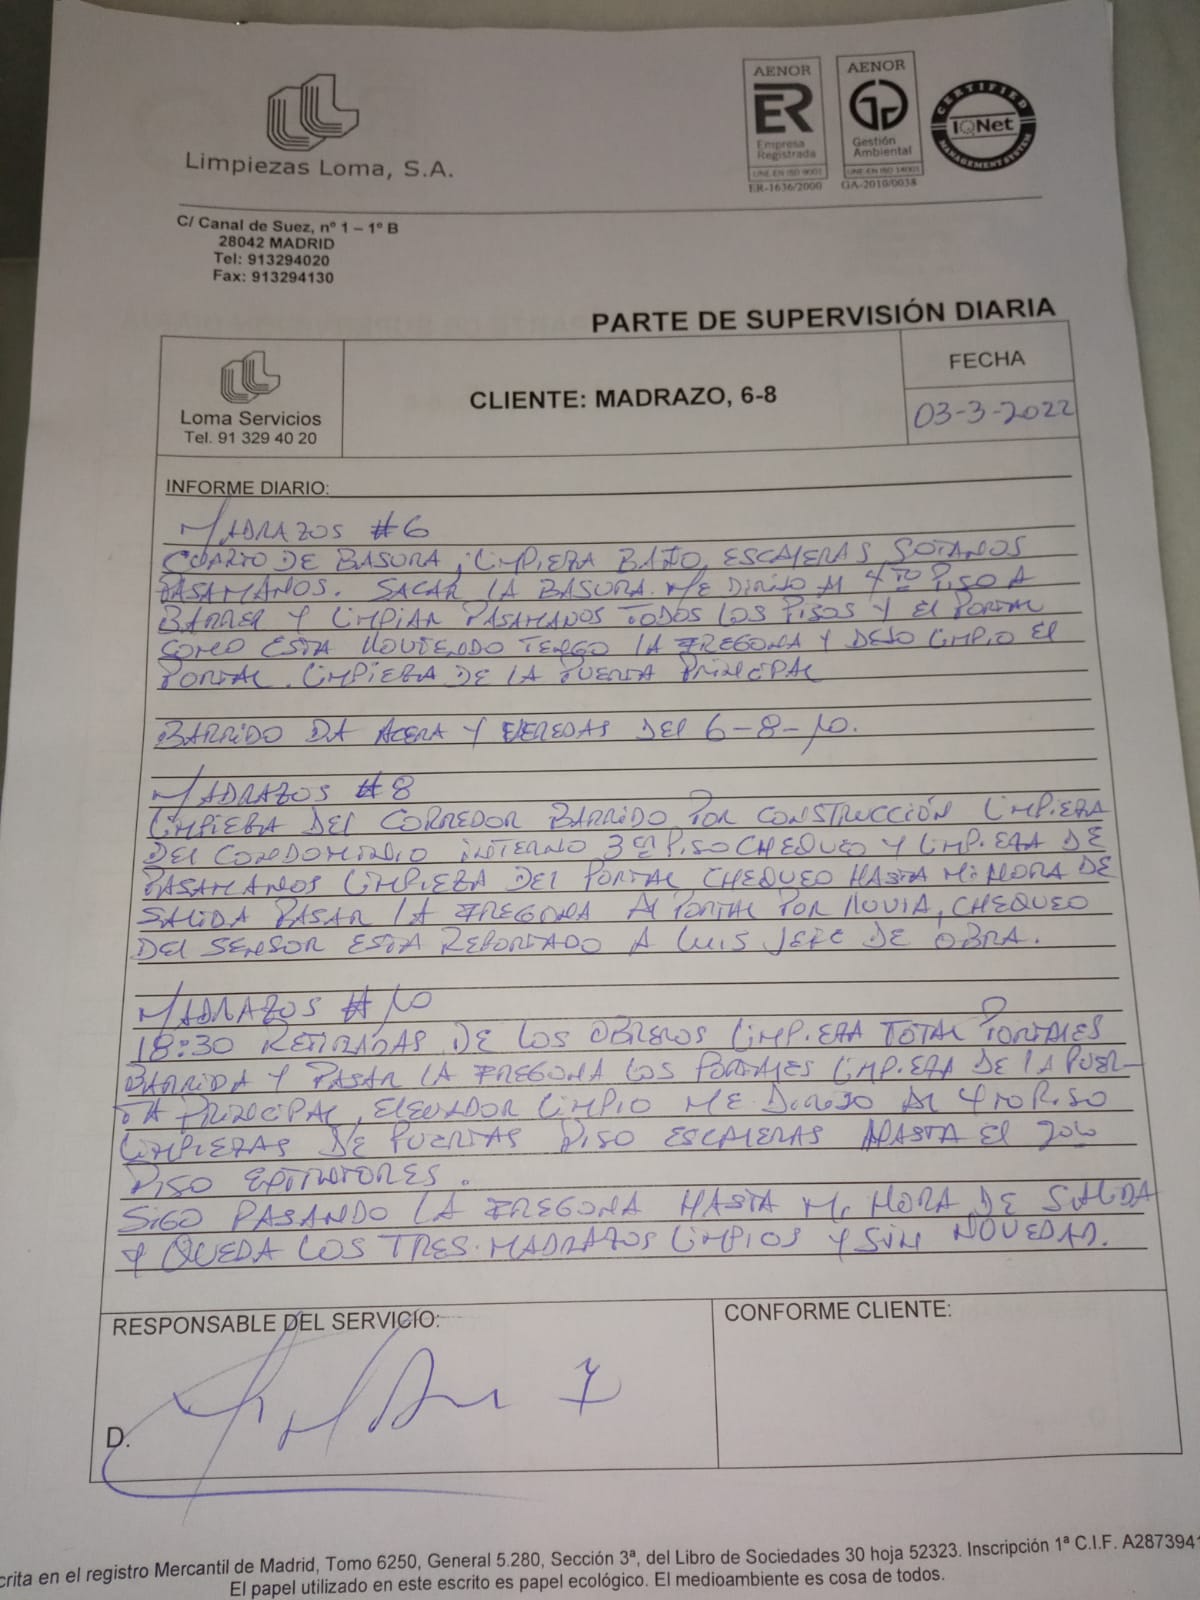 Limpiezas Loma, S.A.
AENOR
ER
Empresa
Registrada
UNE-EN ISO 9001
ER-1636/2000
AENOR
Gestión
Ambiental
UNE-EN ISO 14001
GA-2010/0038
CERTIFIED
IQNet
MANAGEMENT SYSTEM
C/ Canal de Suez, nº 1 – 1º B
28042 MADRID
Tel: 913294020
Fax: 913294130
PARTE DE SUPERVISIÓN DIARIA
Loma Servicios
Tel. 91 329 40 20
CLIENTE: MADRAZO, 6-8
FECHA
03-3-2022
INFORME DIARIO:
MADRAZOS #6
CUARTO DE BASURA, LIMPIEZA BAÑO, ESCALERAS SOTANOS
PASAMANOS. SACAR LA BASURA. ME DIRIJO AL 4TO PISO A
BARRER Y LIMPIAR PASAMANOS TODOS LOS PISOS Y EL PORTAL
COMO ESTA LLOVIENDO TENGO LA FREGONA Y DEJO LIMPIO EL
PORTAL. LIMPIEZA DE LA PUERTA PRINCIPAL
BARRIDO DA ACERA Y VEREDAS DEL 6-8-10.
MADRAZOS #8
LIMPIEZA DEL CORREDOR BARRIDO POR CONSTRUCCIÓN LIMPIEZA
DEL CONDOMINIO INTERNO 3ER PISO CHEQUEO Y LIMPIEZA DE
PASAMANOS LIMPIEZA DEL PORTAL, CHEQUEO HASTA MI HORA DE
SALIDA PASAR LA FREGONA AL PORTAL POR LLUVIA, CHEQUEO
DEL SENSOR ESTA REPORTADO A LUIS JEFE DE OBRA.
MADRAZOS #10
18:30 RETIRADAS DE LOS OBREROS LIMPIEZA TOTAL PORTALES
BARRIDA Y PASAR LA FREGONA LOS PORTALES LIMPIEZA DE LA PUER-
TA PRINCIPAL, ELEVADOR LIMPIO ME DIRIJO AL 4TO PISO
LIMPIEZAS DE PUERTAS PISO ESCALERAS HASTA EL 2DO
PISO EXTINTORES.
SIGO PASANDO LA FREGONA HASTA MI HORA DE SALIDA
Y QUEDA LOS TRES MADRAZOS LIMPIOS Y SIN NOVEDAD.
RESPONSABLE DEL SERVICIO:
CONFORME CLIENTE:
D.
crita en el registro Mercantil de Madrid, Tomo 6250, General 5.280, Sección 3ª, del Libro de Sociedades 30 hoja 52323. Inscripción 1ª C.I.F. A2873941
El papel utilizado en este escrito es papel ecológico. El medioambiente es cosa de todos.